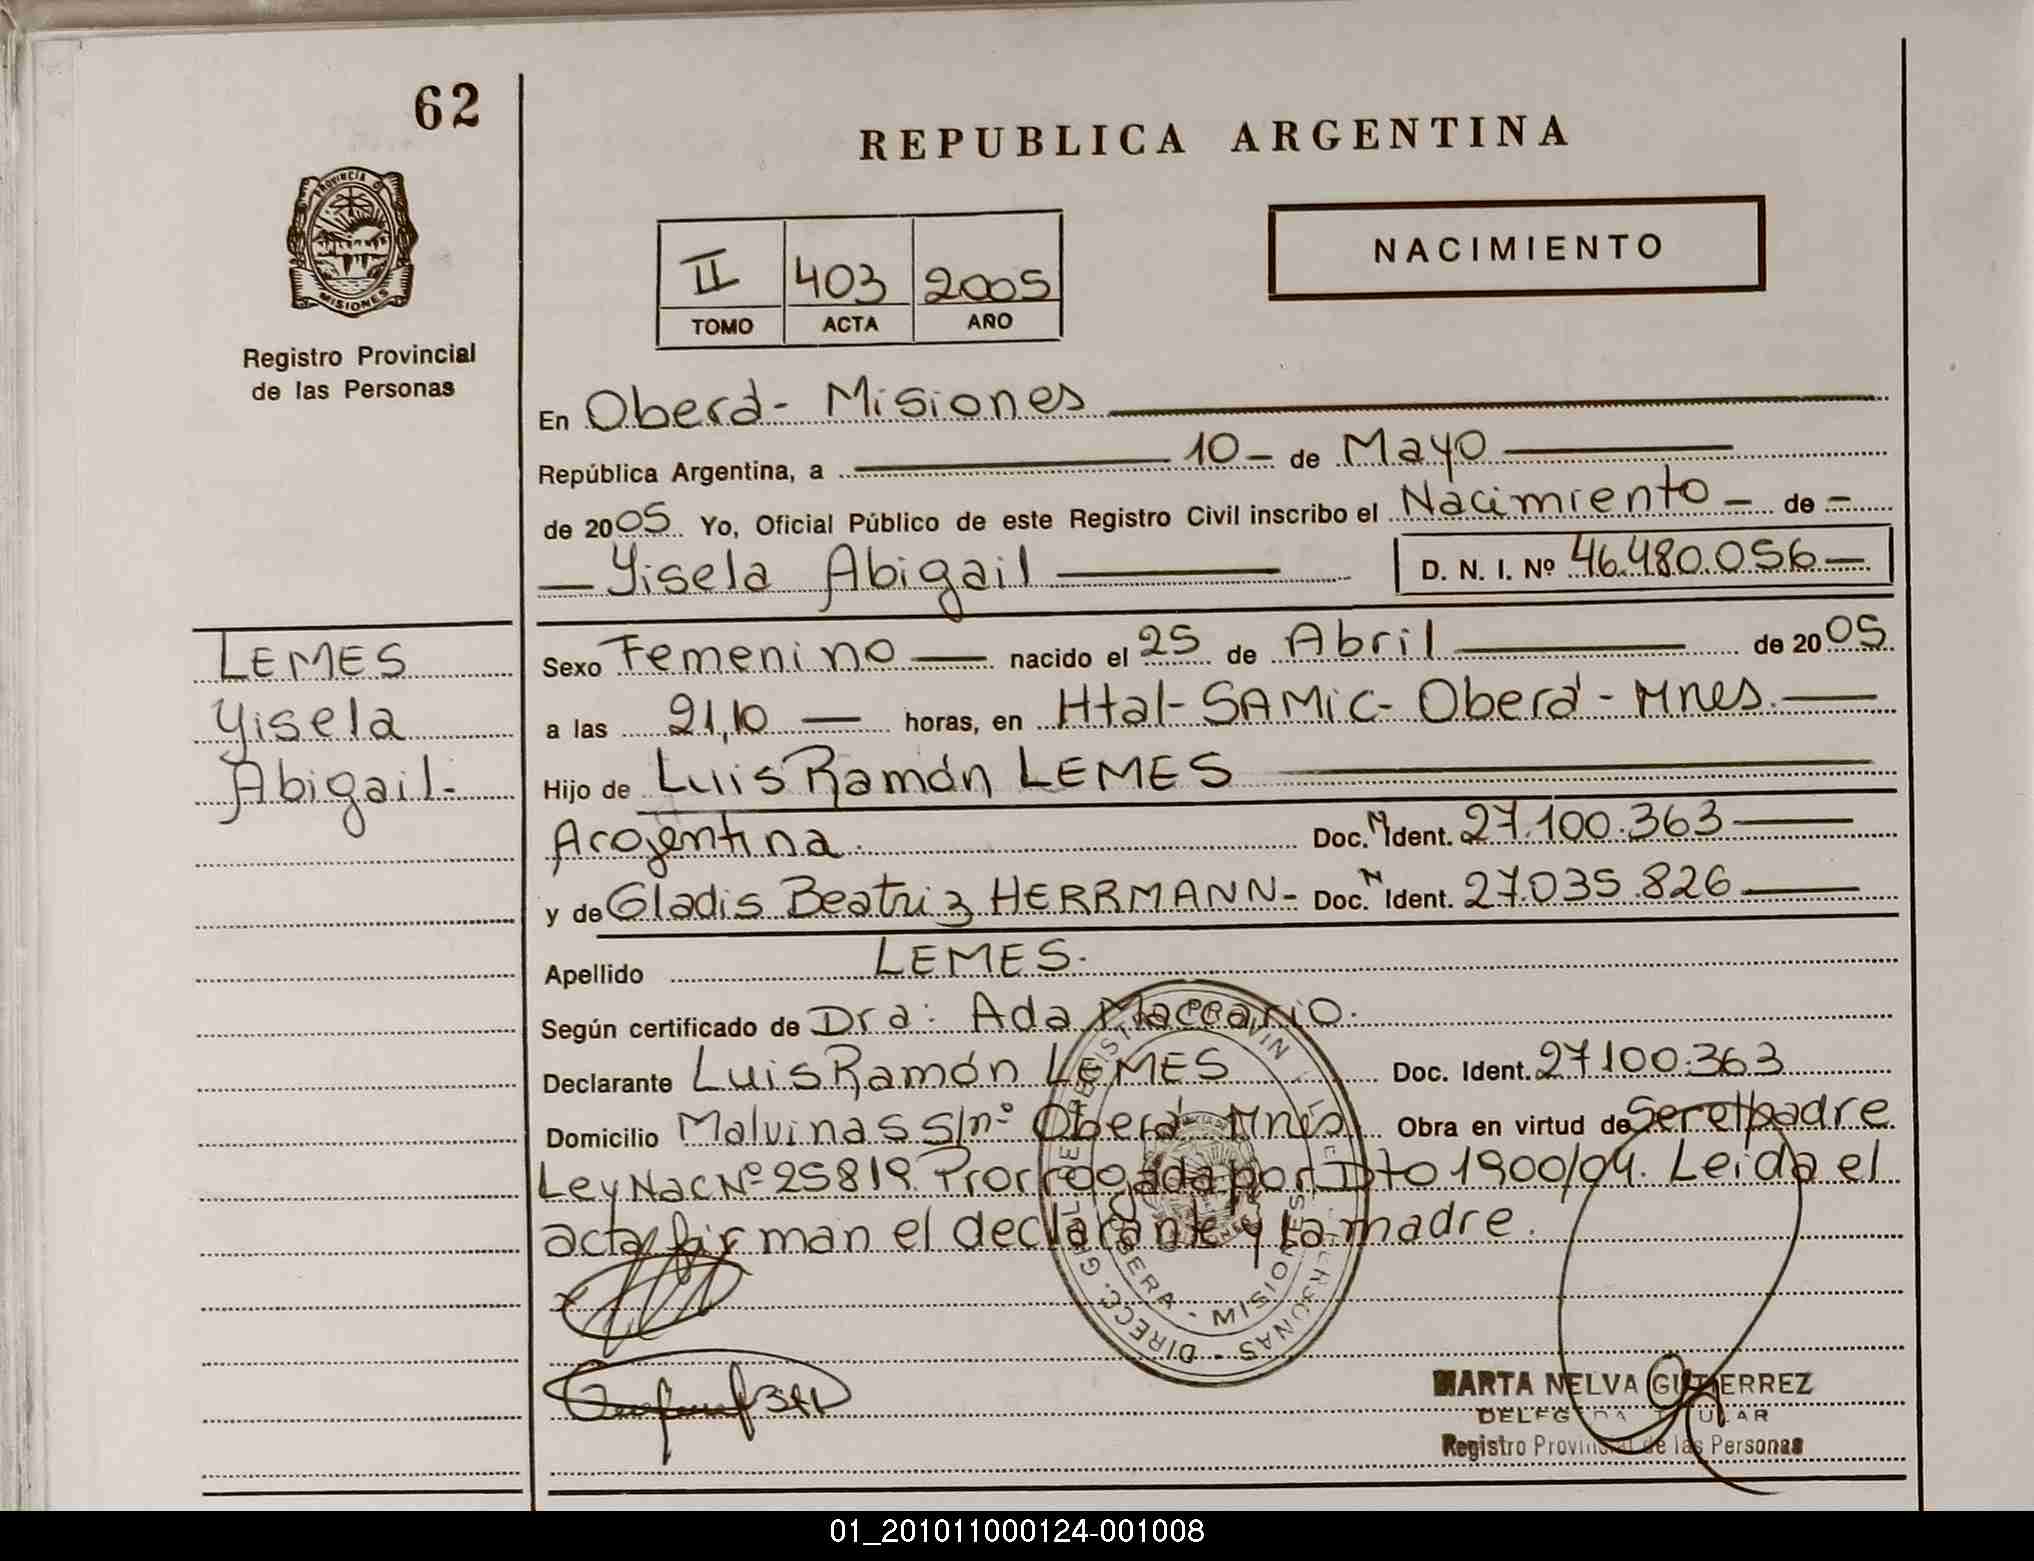 62
REPUBLICA ARGENTINA
PROVINCIA DE
MISIONES
Registro Provincial
de las Personas
II 403 2005
TOMO ACTA AÑO
NACIMIENTO
En Oberá- Misiones
República Argentina, a 10- de Mayo
de 2005 Yo, Oficial Público de este Registro Civil inscribo el Nacimiento - de -
Yisela Abigail D. N. I. Nº 46.480.056-
LEMES
Yisela
Abigail.-
Sexo Femenino - nacido el 25 de Abril de 2005
a las 21,10 - horas, en Htal- SAMIC- Oberá - Mnes.
Hijo de Luis Ramón LEMES
Argentina. Doc. N Ident. 27.100.363
y de Gladis Beatriz HERRMANN- Doc. N Ident. 27.035.826
Apellido LEMES.
Según certificado de Dra: Ada Maccario.
Declarante Luis Ramón LEMES Doc. Ident. 27100.363
Domicilio Malvinas S/nº Oberá Mnes Obra en virtud de Ser el padre
Ley Nac Nº 25819. Prorrogada por Dto 1900/04. Leida el
acta firman el declarante y la madre.
OBERA - MISIONES
MARTA NELVA GUTIERREZ
DELEGADA TITULAR
Registro Provincial de las Personas
01_201011000124-001008